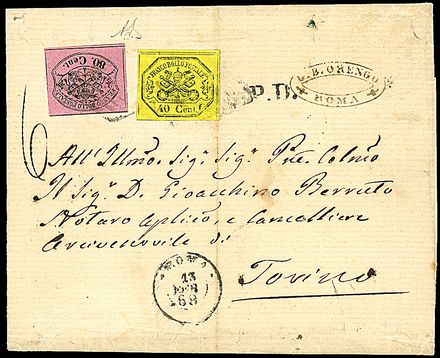 80 Cent.
FRANCO BOLLO POSTALE
40 Cent.
P.D.
G. B. ORENGO
ROMA
All' Illmo. Sigr. Sigr. Pne. Colmo
Il Sigr. D. Gioacchino Berruto
Notaro Aplico, e Cancelliere
Arcivescovile di
Torino
ROMA
13
68